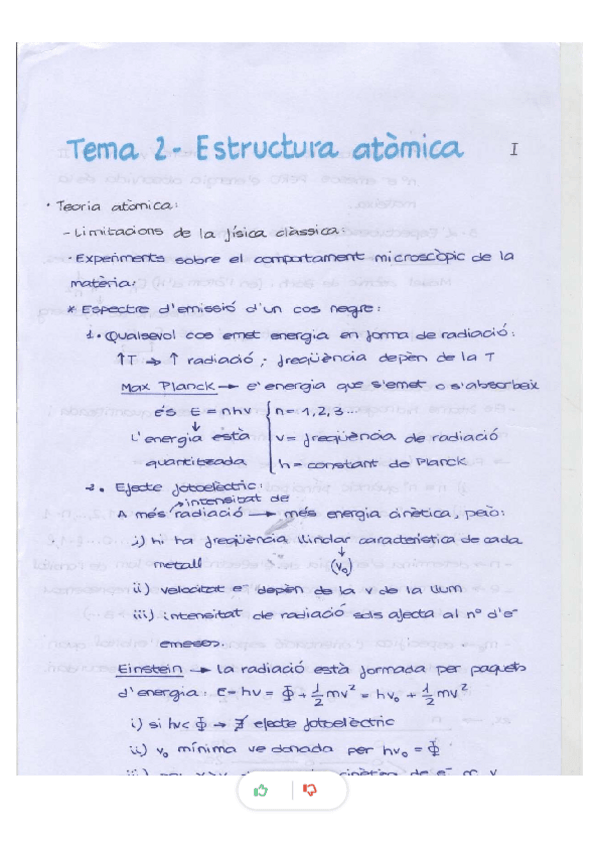 Tema 2- Estructura atòmica I
· Teoria atòmica:
- Limitacions de la física clàssica:
· Experiments sobre el comportament microscòpic de la
matèria:
* Espectre d'emissió d'un cos negre:
1. Qualsevol cos emet energia en forma de radiació:
↑T → ↑ radiació ; freqüència depèn de la T
Max Planck → e'energia que s'emet o s'absorbeix
és E = nhv { n= 1,2,3...
L'energia està v= freqüència de radiació
quantitzada h= constant de Planck
2. Efecte fotoelèctric:
intensitat de
A més radiació → més energia cinètica, però:
i) hi ha freqüència llindar característica de cada
metall (v₀)
ii) velocitat e⁻ depèn de la v de la llum
iii) intensitat de radiació sols afecta al nº d'e⁻
emesos.
Einstein → la radiació està formada per paquets
d'energia: E=hv = Φ + 1/2 mv² = hv₀ + 1/2 mv²
i) si hv< Φ → ∄ efecte fotoelèctric
ii) v₀ mínima ve donada per hv₀ = Φ